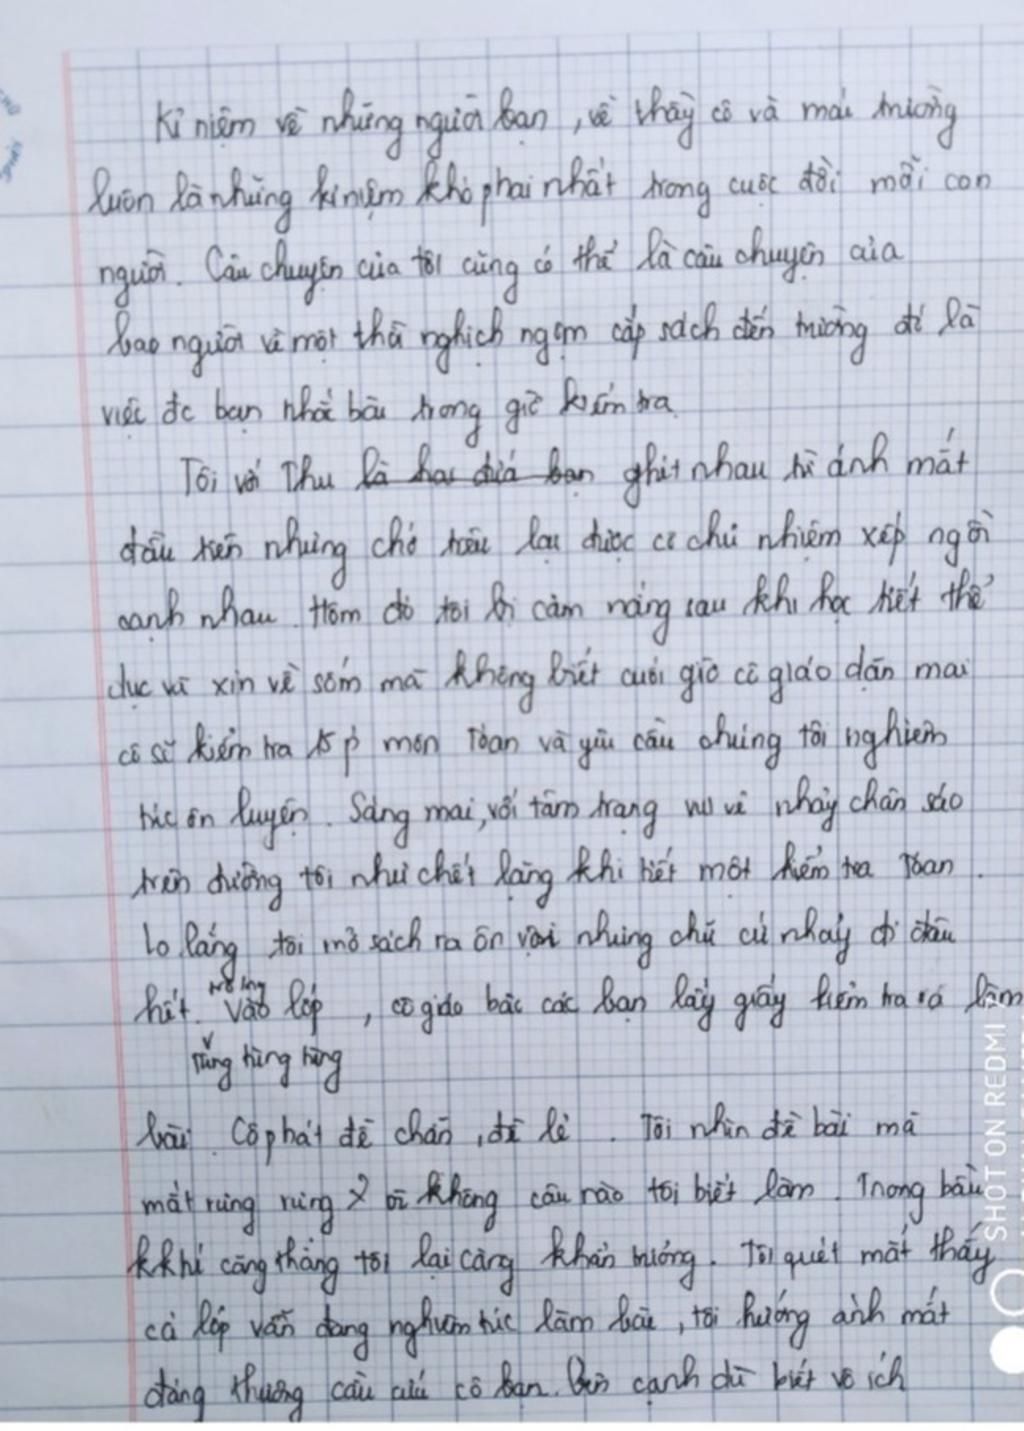 Kỉ niệm về những người bạn, về thầy cô và mái trường
luôn là những kỉ niệm khó phai nhất trong cuộc đời mỗi con
người. Câu chuyện của tôi cũng có thể là câu chuyện của
bao người về một thời nghịch ngợm cắp sách đến trường đó là
việc đc bạn nhắc bài trong giờ kiểm tra
Tôi với Thu là hai đứa bạn ghét nhau từ ánh mắt
đầu tiên nhưng chớ trêu lại được cô chủ nhiệm xếp ngồi
cạnh nhau. Hôm đó tôi bị cảm nắng sau khi học tiết thể
dục và xin về sớm mà không biết cuối giờ cô giáo dặn mai
cô sẽ kiểm tra 15p môn Toán và yêu cầu chúng tôi nghiêm
túc ôn luyện. Sáng mai, với tâm trạng vui vẻ nhảy chân sáo
trên đường tôi như chết lặng khi tiết một kiểm tra Toán.
Lo lắng tôi mở sách ra ôn vội nhưng chữ cứ nhảy đi đâu
hết. Vào lớp, cô giáo bắc các bạn lấy giấy kiểm tra ra làm
trống
tùng tùng
bài. Cô phát đề chẵn, đề lẻ. Tôi nhìn đề bài mà
mắt rưng rưng không câu nào tôi biết làm. Trong bầu
kkhí căng thẳng tôi lại càng khẩn trương. Tôi quét mắt thấy
cả lớp vẫn đang nghiêm túc làm bài, tôi hướng ánh mắt
đáng thương cầu cứu cô bạn bên cạnh dù biết vô ích
SHOT ON REDMI 7